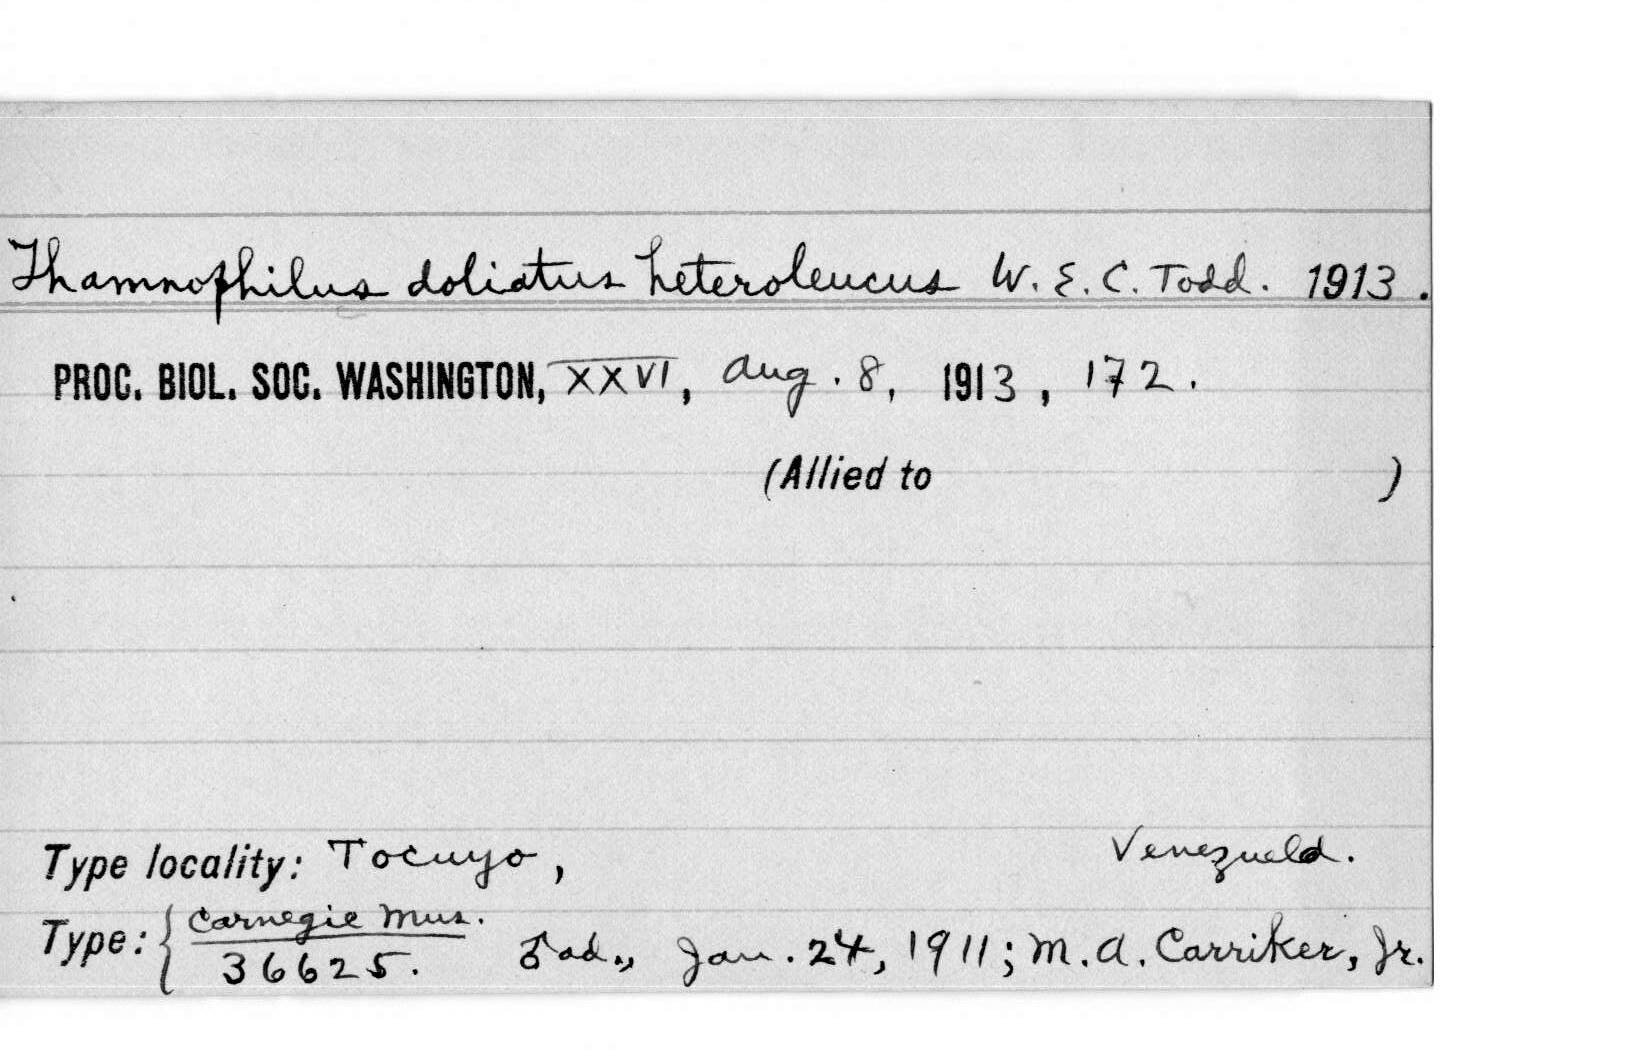 Thamnophilus doliatus heteroleucus W. E. C. Todd. 1913.
PROC. BIOL. SOC. WASHINGTON, XXVI, Aug. 8, 1913, 172.
(Allied to )
Type locality: Tocuyo, Venezuela.
Type: { Carnegie Mus.
36625. ♂ ad., Jan. 24, 1911; M. A. Carriker, Jr.